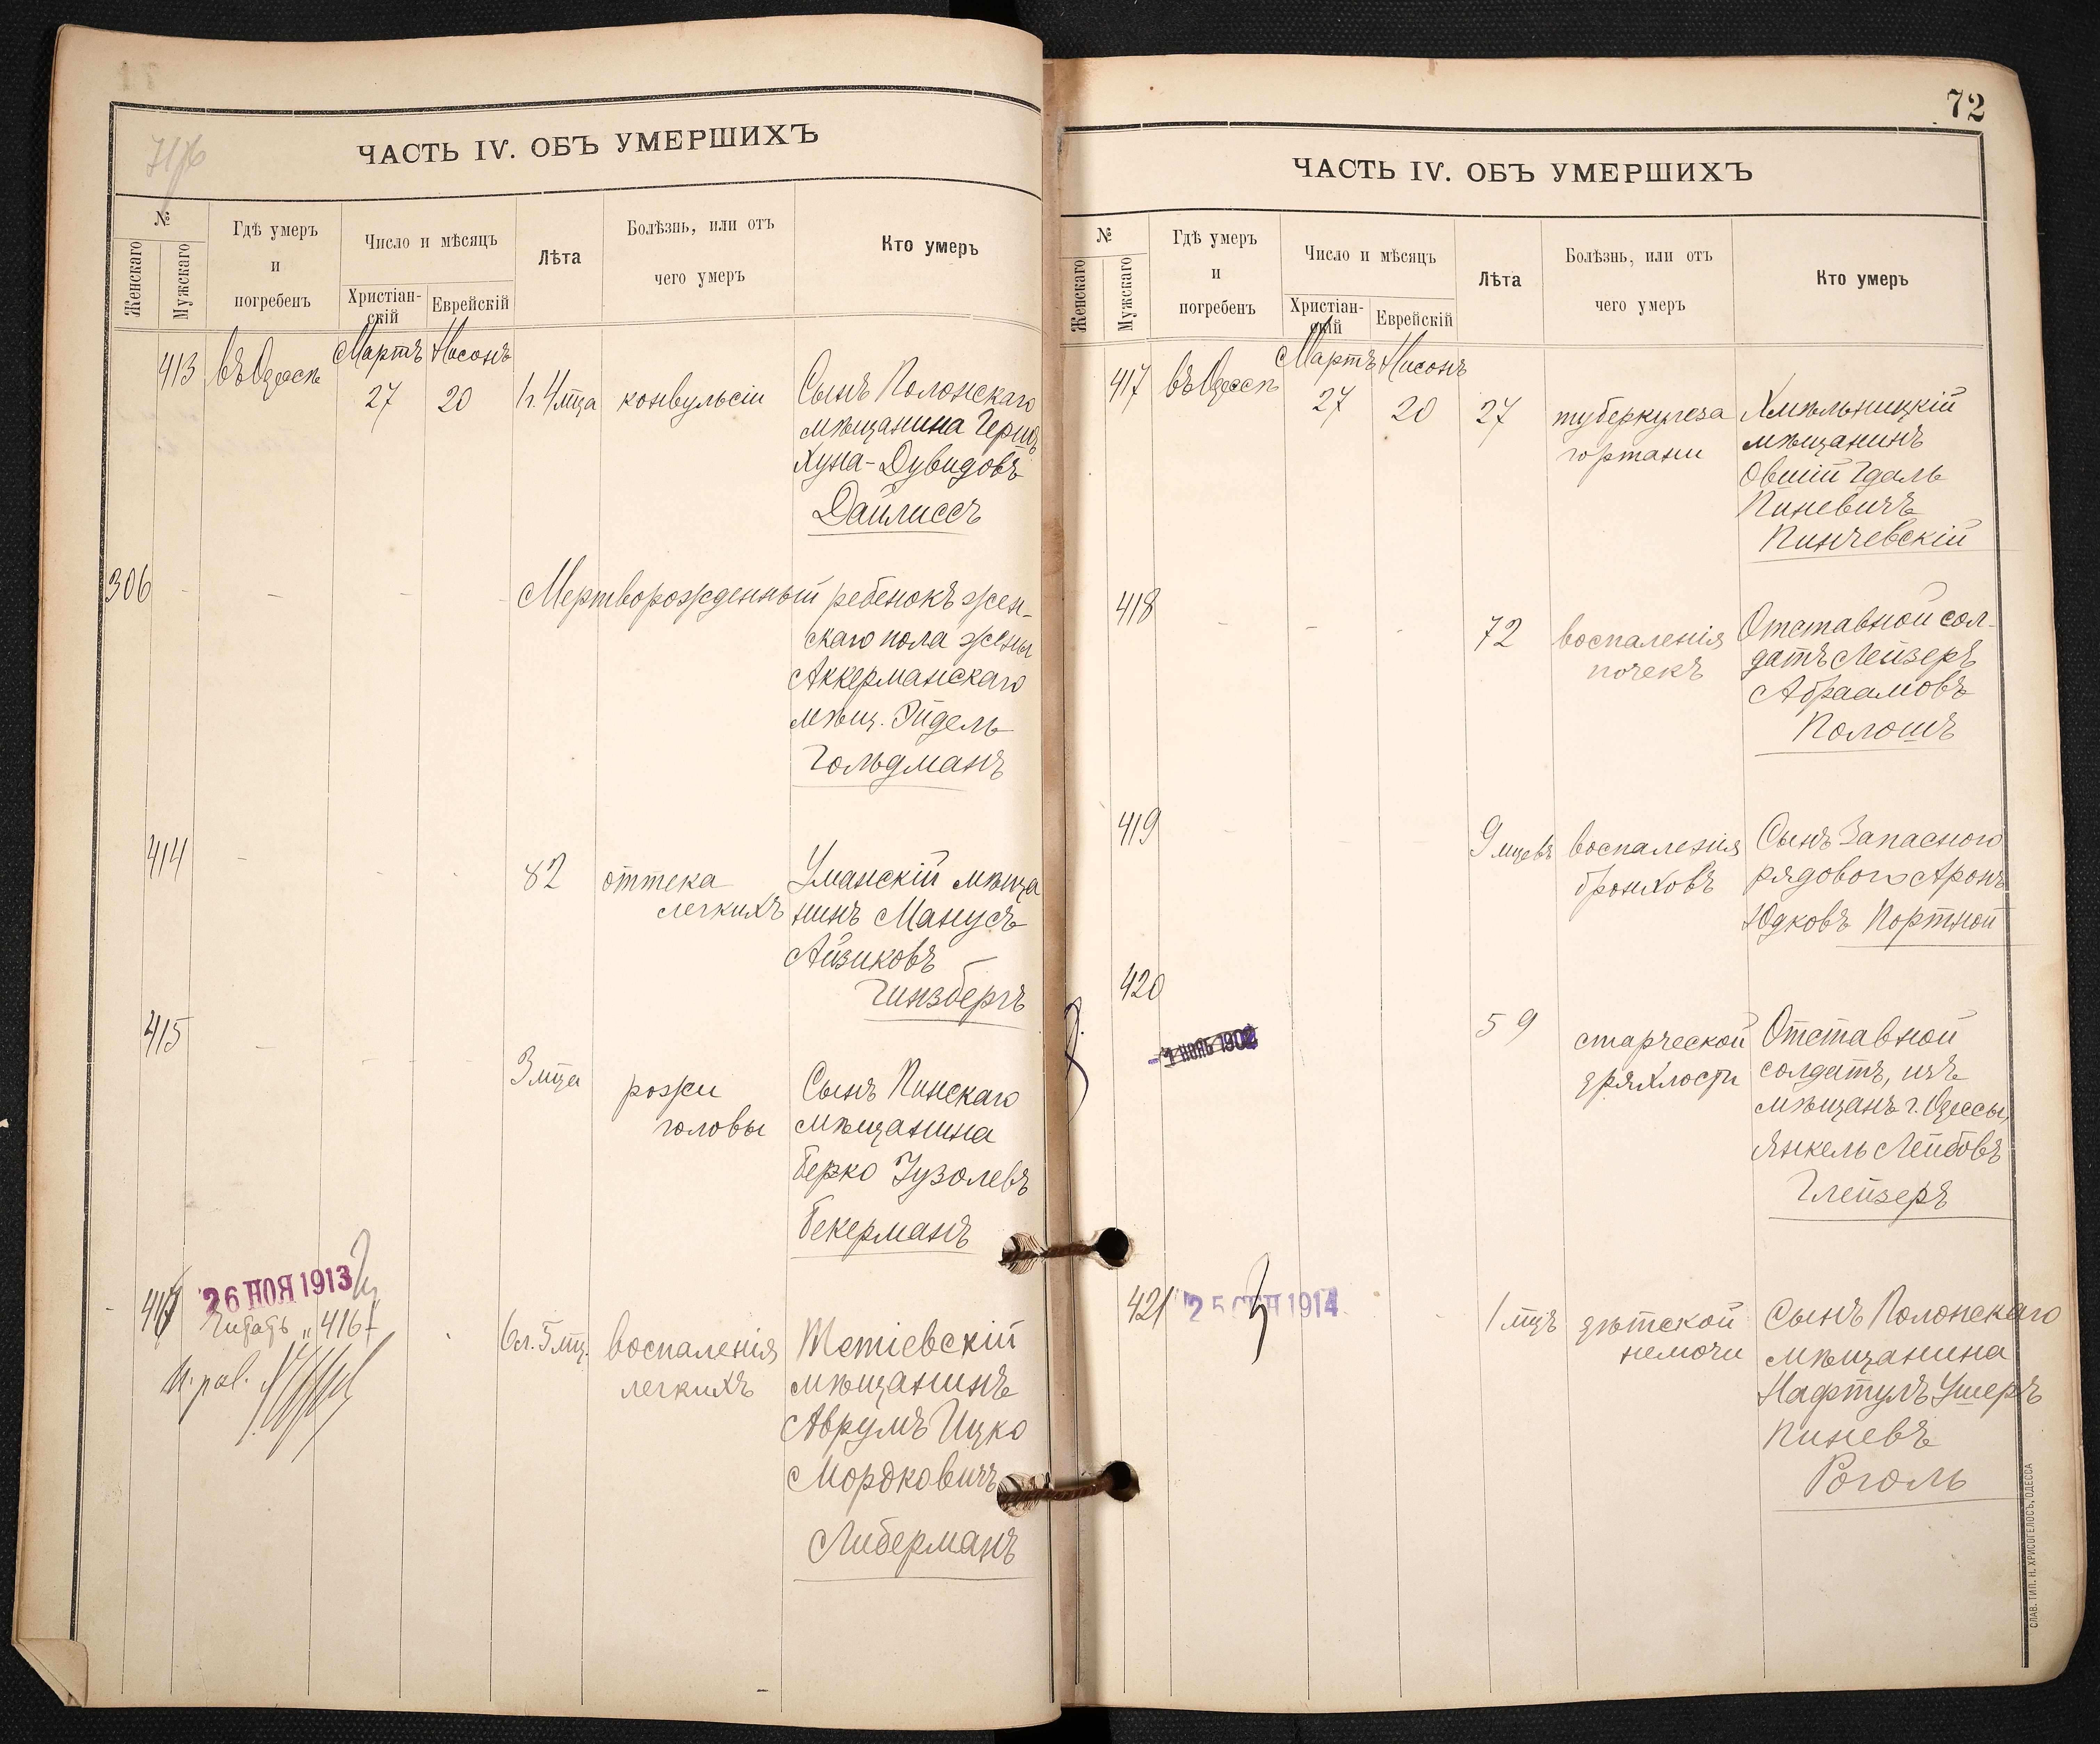 71об
ЧАСТЬ IV. ОБЪ УМЕРШИХЪ
№
Женскаго
Мужскаго
Гдѣ умеръ
и
погребенъ
Число и мѣсяцъ
Христіан-
скій
Еврейскій
Лѣта
Болѣзнь, или отъ
чего умеръ
Кто умеръ
413 въ Одессѣ Мартъ Нисонъ
27 20 1г. 4 мца конвульсіи Сынъ Полонскаго
мѣщанина Герцъ
Хуна-Дувидовъ
Дайлиссъ
306 Мертворожденный ребенокъ жен-
скаго пола жены
Аккерманскаго
мѣщ. Эйдель
Гольдманъ
414
82 оттека Уманскій мѣща
легкихъ нинъ Манусъ
Айзиковъ
Гинзбергъ
415
3 мца рожи Сынъ Пинскаго
головы мѣщанина
Берко Іузолевъ
Бекерманъ
26 НОЯ 1913
Читать „416"
6 л. 5 мц. воспаленія Тетіевскій
легкихъ мѣщанинъ
Аврумъ Ицко
Мордковичъ
Либерманъ
72
ЧАСТЬ IV. ОБЪ УМЕРШИХЪ
№
Женскаго
Мужскаго
Гдѣ умеръ
и
погребенъ
Число и мѣсяцъ
Христіан-
скій
Еврейскій
Лѣта
Болѣзнь, или отъ
чего умеръ
Кто умеръ
417 въ Одессѣ Мартъ Нисонъ
27 20 27 туберкулеза Хмѣльницкій
гортани мѣщанинъ
Овшій Гдаль
Пиневичъ
Пинчевскій
418
72 воспаленія Отставной сол-
почекъ датъ Лейзеръ
Абраамовъ
Полошъ
419
9 мцевъ воспаленія Сынъ Запасного
бронховъ рядового Аронъ
Юдковъ Портной
420
59 старческой Отставной
дряхлости солдатъ, изъ
мѣщанъ г. Одессы,
Янкель Лейбовъ
Глейзеръ
1902
421 25 СЕН 1914
1 мцъ дѣтской Сынъ Полонскаго
немочи мѣщанина
Нафтулъ Ушеръ
Пиневъ
Роголь
СЛАВ. ТИП. Н. ХРИСОГЕЛОСЪ, ОДЕССА